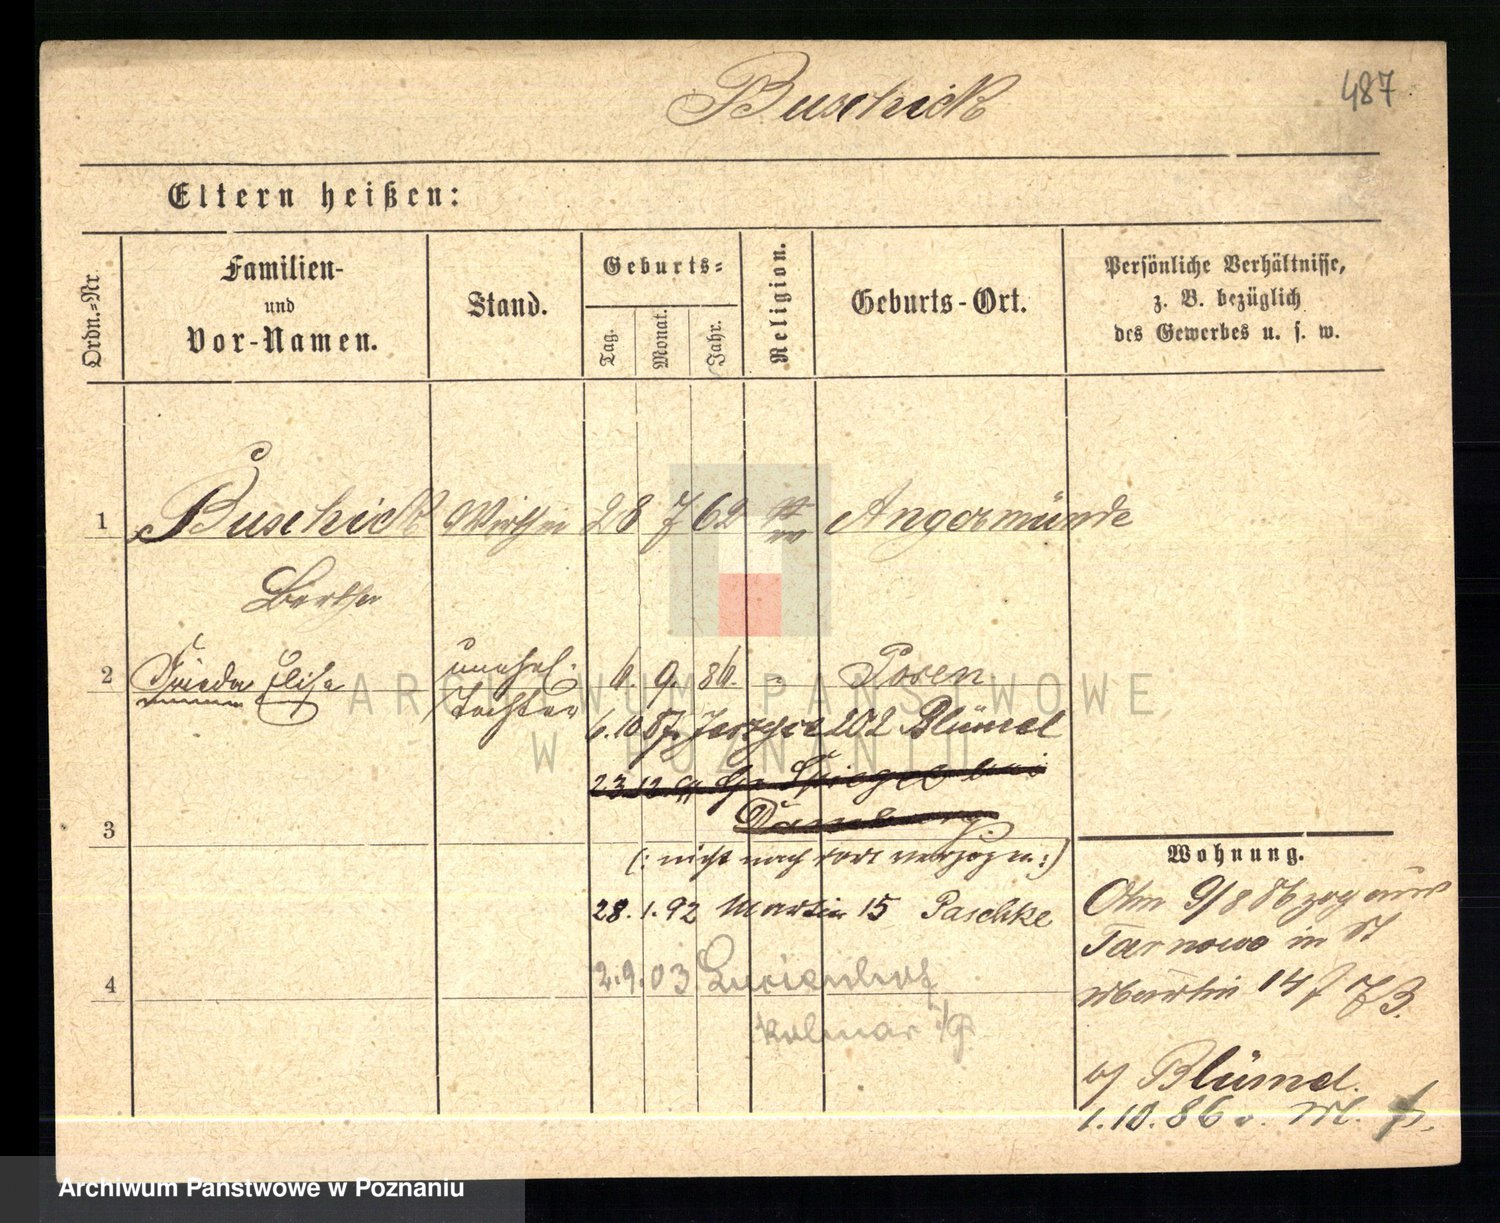 Buschick
487
Eltern heißen:
Ordn.-Nr.
Familien-
und
Vor-Namen.
Stand.
Geburts-
Tag.
Monat.
Jahr.
Religion.
Geburts-Ort.
Persönliche Verhältnisse,
z. B. bezüglich
des Gewerbes u. s. w.
1 Buschick 28 7 62 Angermünde
Bertha
2 Frieda Elise unehel. 6. 9. 86. Posen
Tochter
6.10 87. Jerzyce 202 Blümel
23.12.91 Spiegel bei
3
(: nicht nach dort verzogen :)
28.1.92 Martin 15 Paschke
4 2.9.03
Kolmar i/P
Wohnung.
9/8 86 zog aus
Tarnowo in St
Martin 14
b/ Blümel.
1.10.86
ARCHIWUM PAŃSTWOWE
W POZNANIU
Archiwum Państwowe w Poznaniu